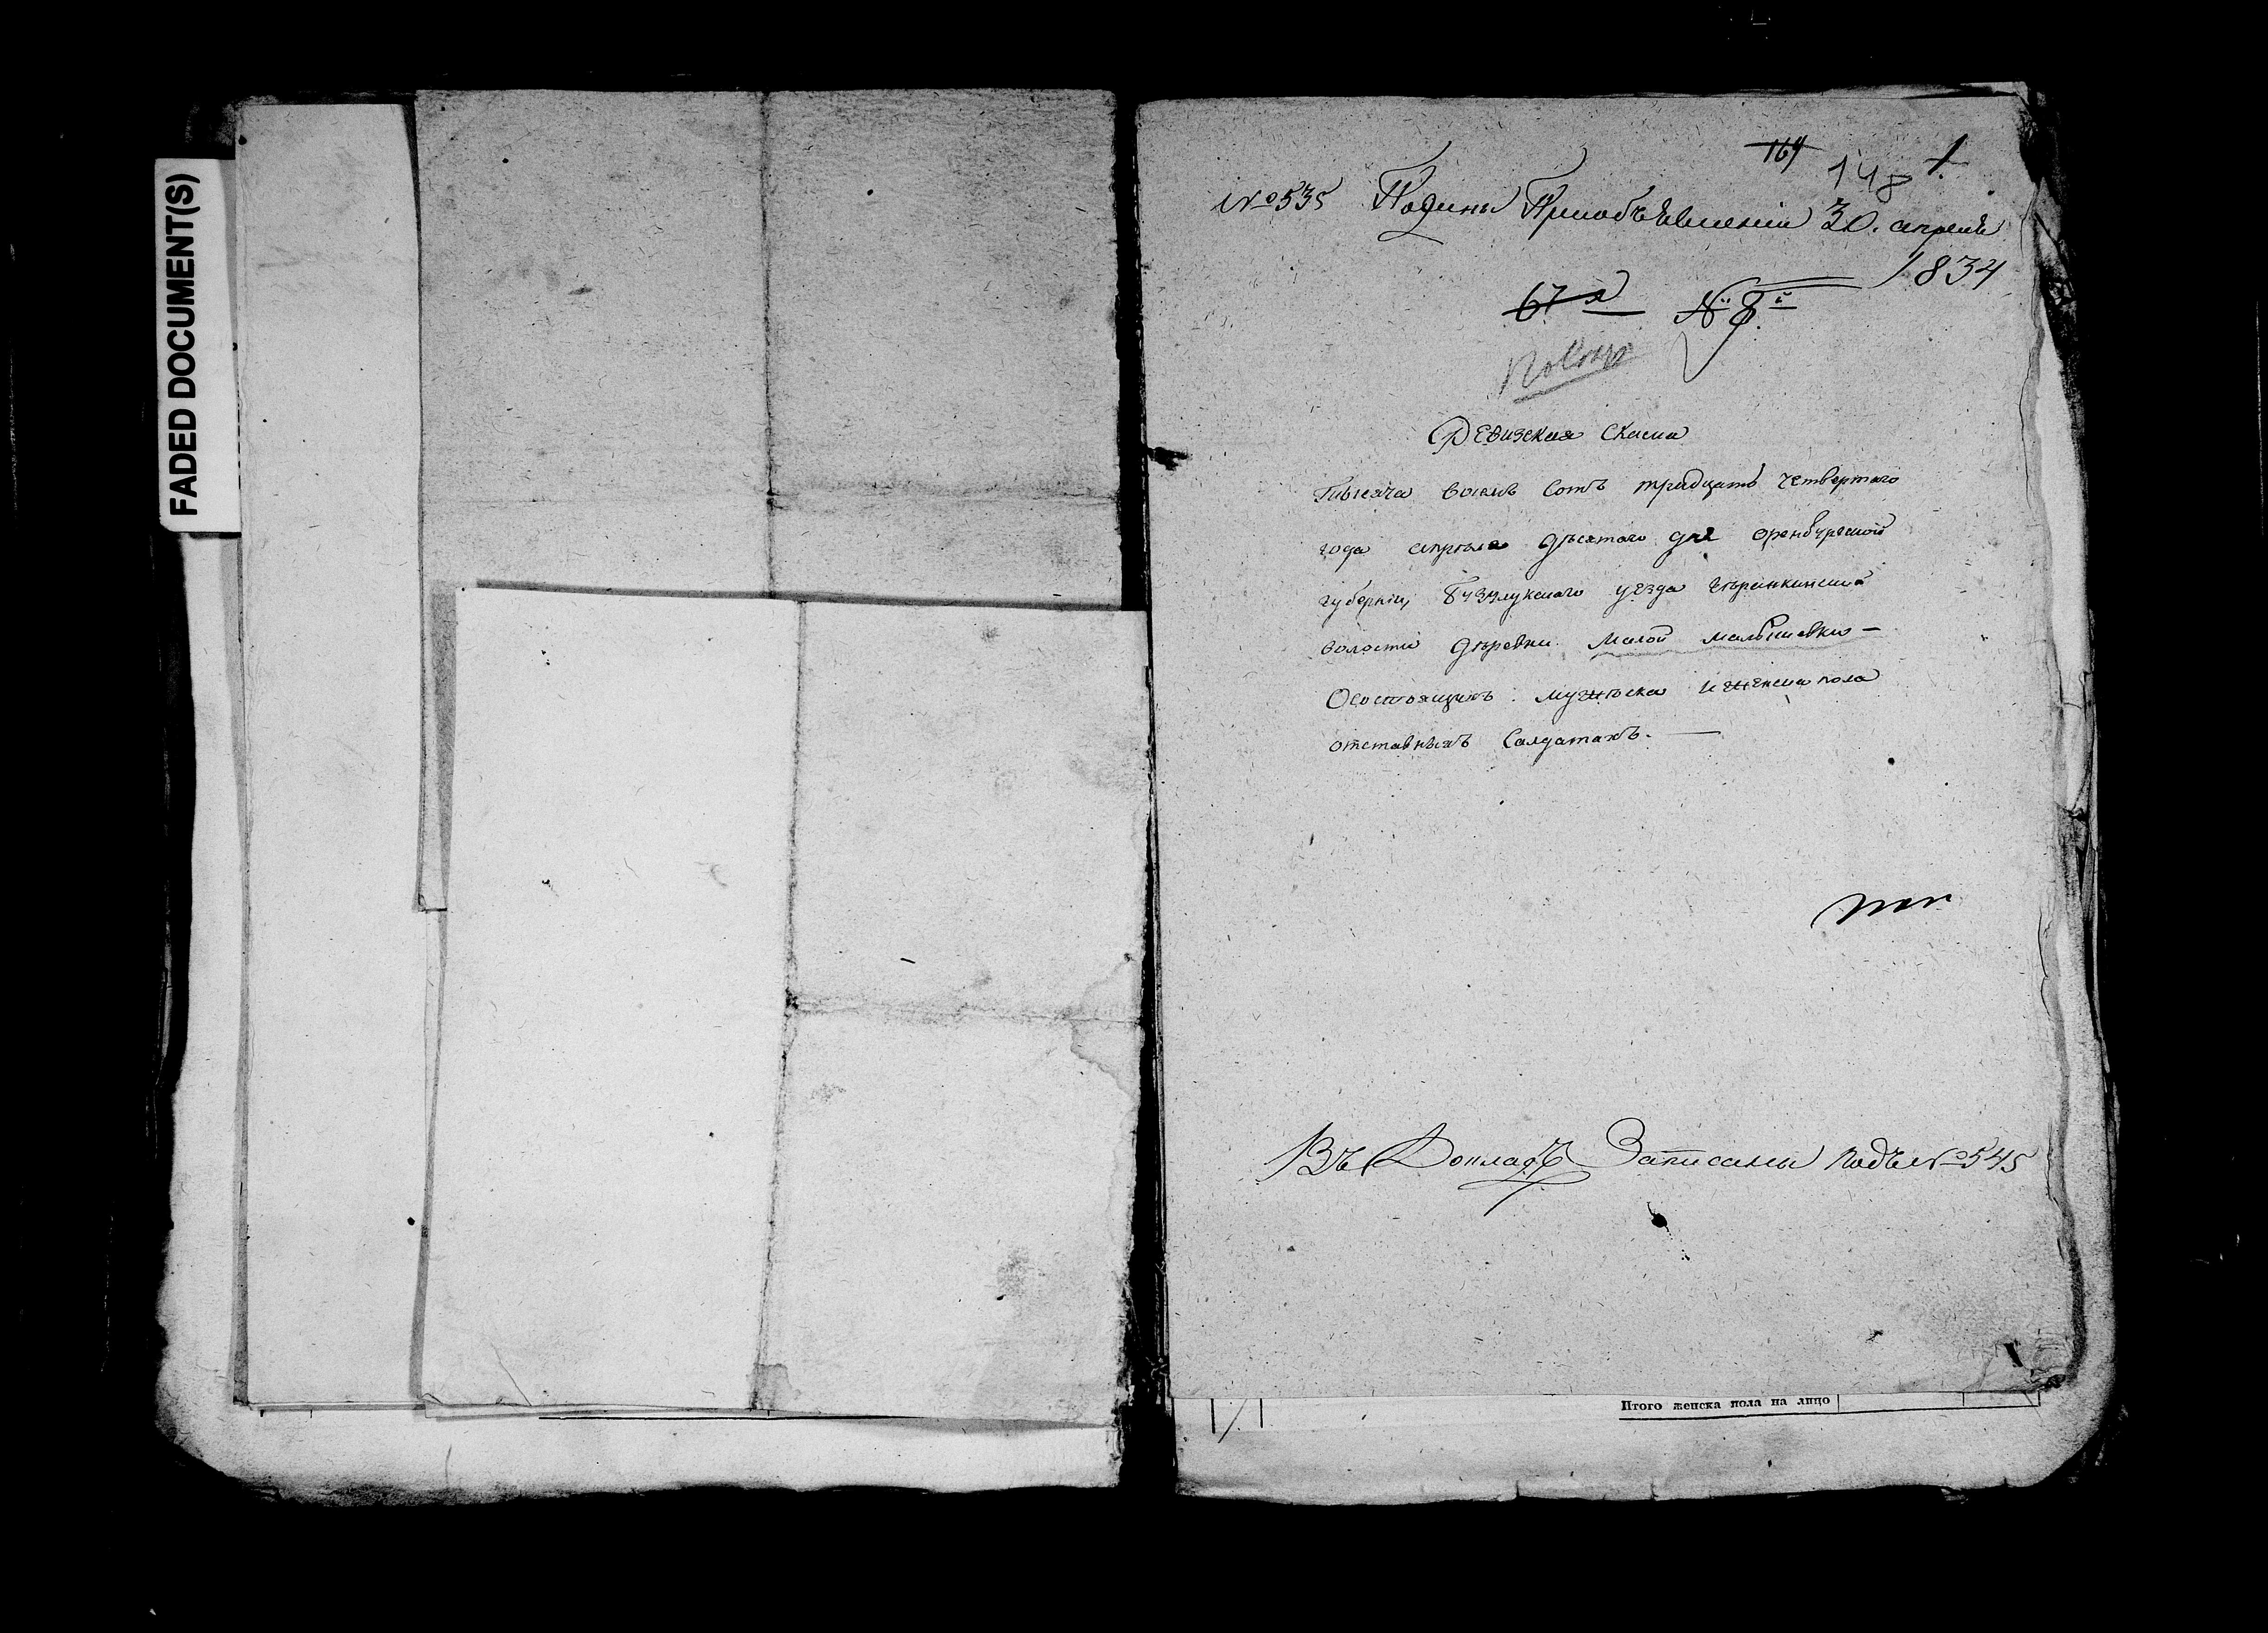 FADED DOCUMENT(S)
164 148 1.
№ 535 Поданы Приобъявлении 30. апреля
1834
67я № 8й
Ревизская Скаска
Тысяча восемь сотъ тридцать четвертаго
года апреля десятаго дня оренбургской
губернии, Бузулукскаго уезда
волости деревни Малой малышевки —
Осостоящихъ мужеска и женска пола
отставныхъ Салдатахъ. —
Въ Докладъ Записаны подъ № 545
Итого женска пола на лицо